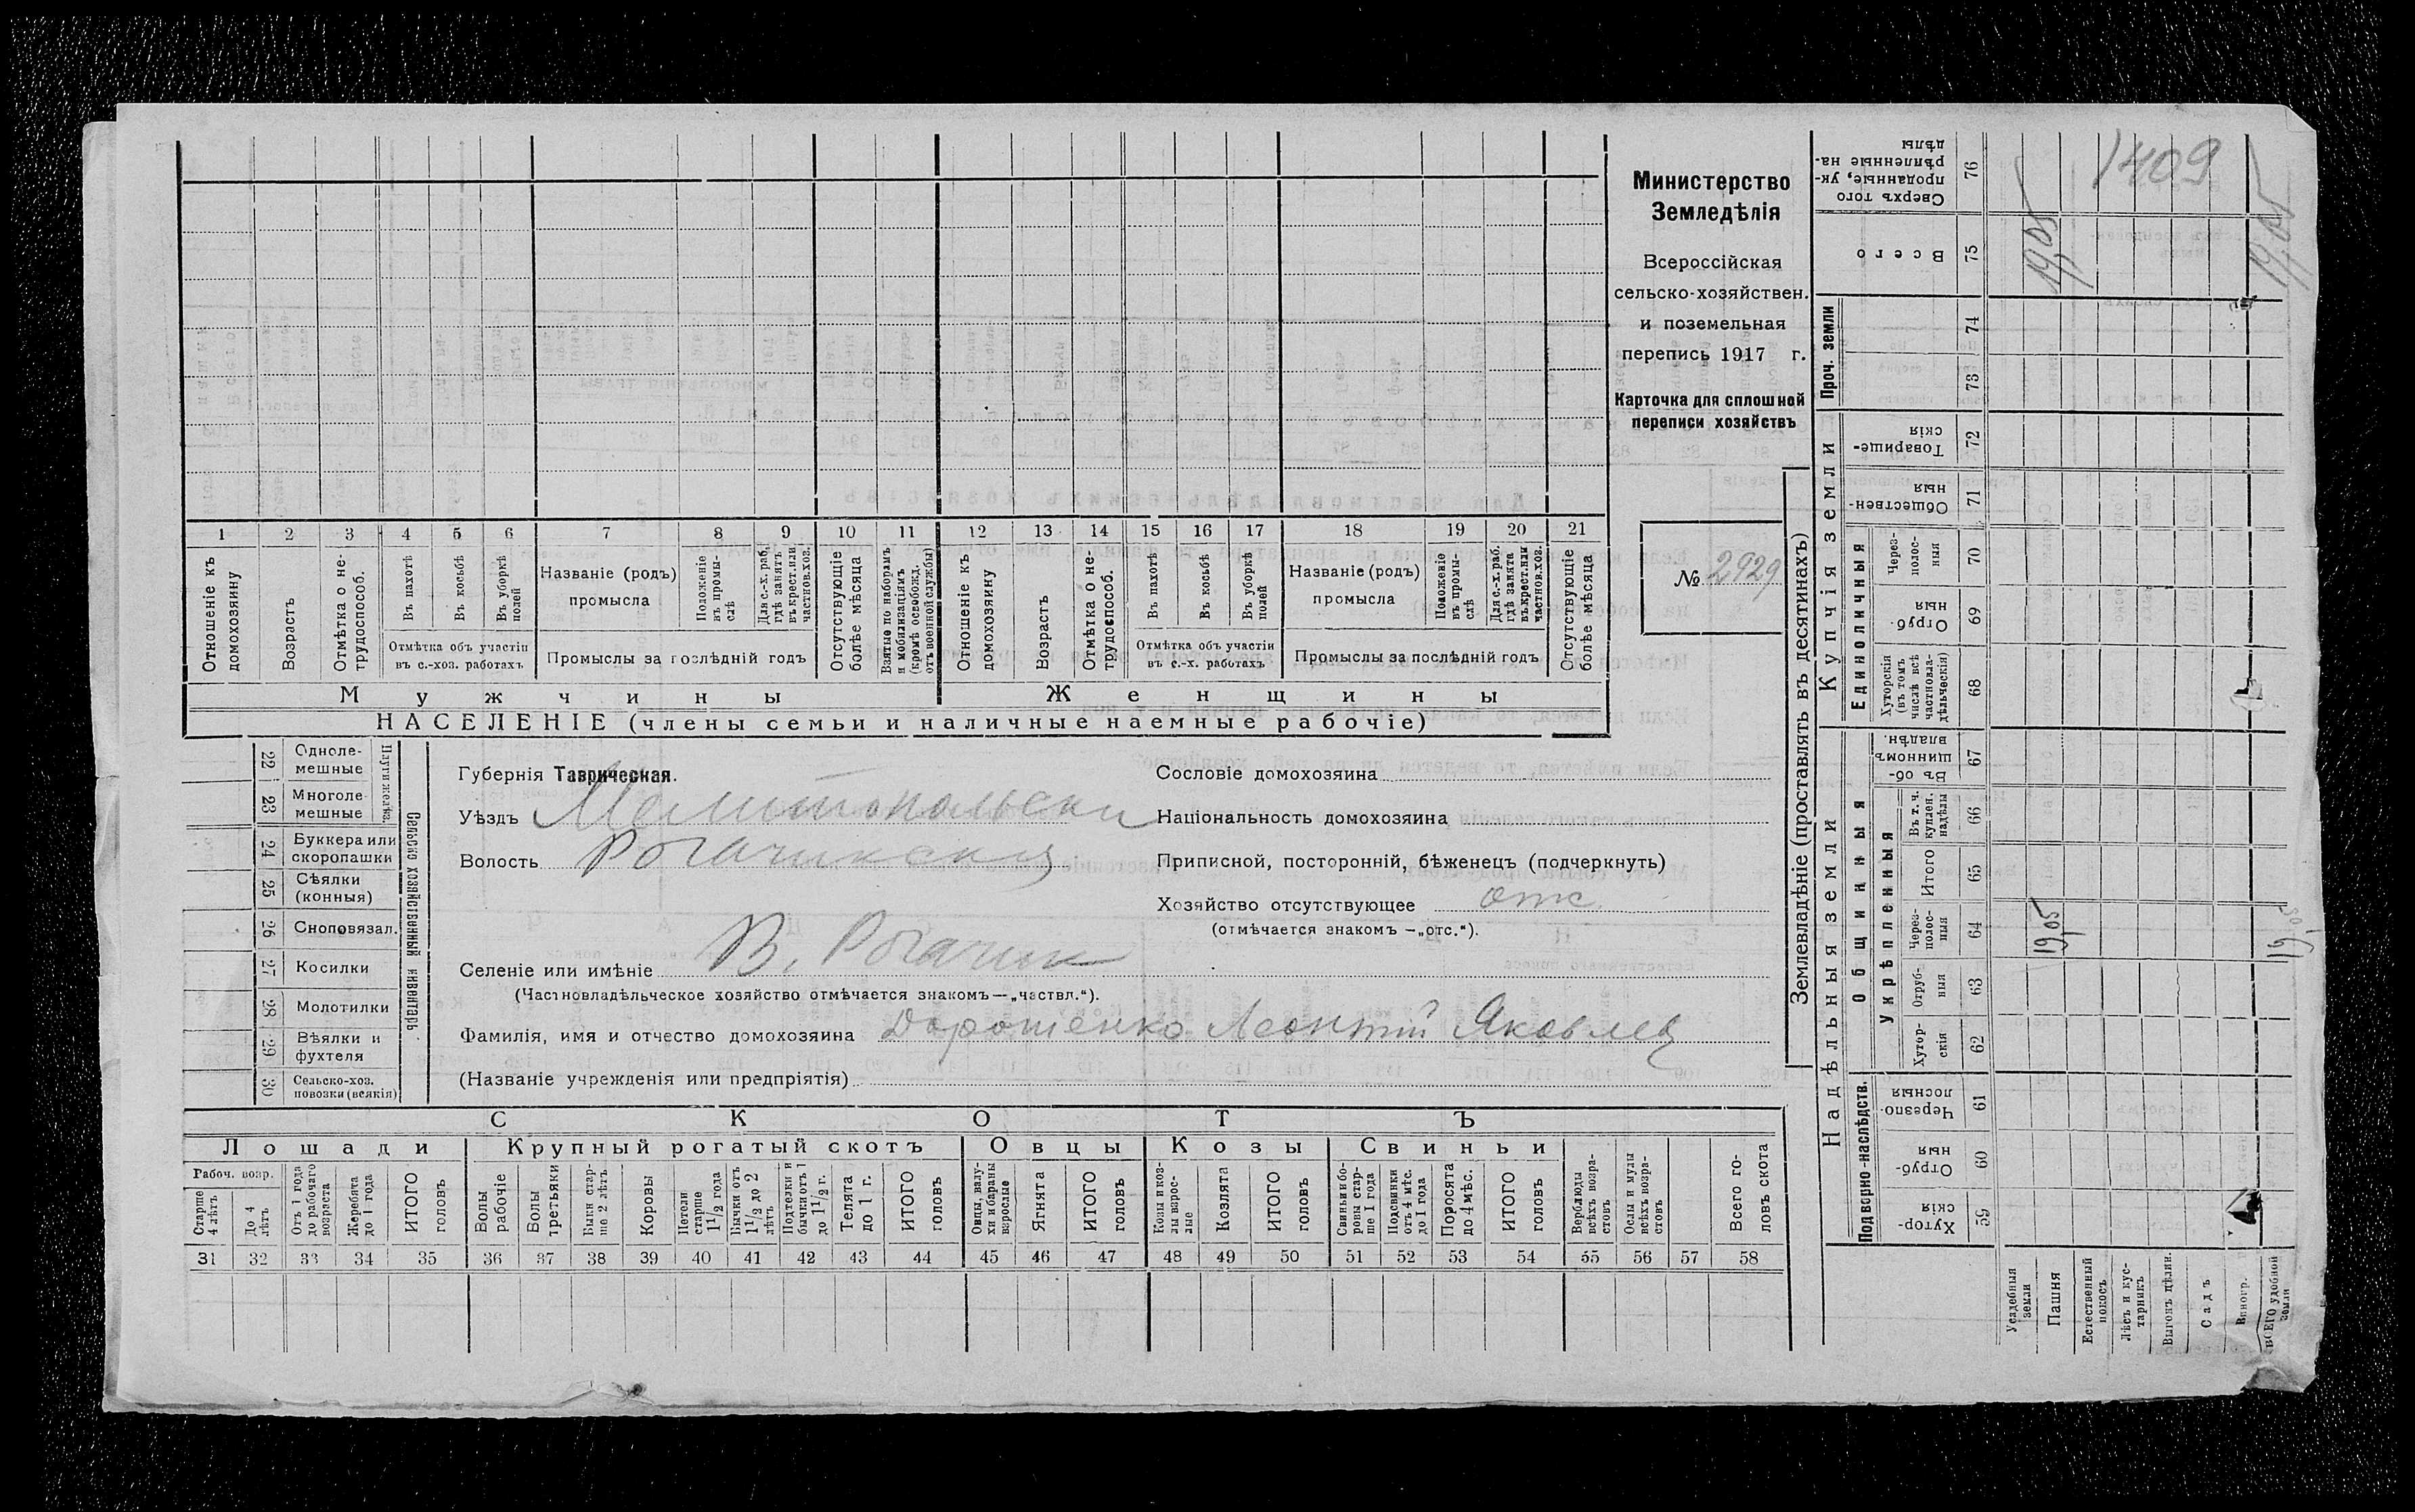 Министерство
Земледѣлія
Всероссійская
сельско-хозяйствен.
и поземельная
перепись 1917 г.
Карточка для сплошной
переписи хозяйствъ
№ 2929
1 2 3 4 5 6 7 8 9 10 11 12 13 14 15 16 17 18 19 20 21
Отношеніе къ домохозяину
Возрастъ
Отмѣтка о не-трудоспособ.
Въ пахотѣ
Въ косьбѣ
Въ уборкѣ полей
Отмѣтка объ участіи
въ с.-хоз. работахъ
Названіе (родъ)
промысла
Положеніе въ промы-слѣ
Для с.-х. раб. гдѣ занятъ въ крест. или частнов. хоз.
Промыслы за послѣдній годъ
Отсутствующіе болѣе мѣсяца
Взятые по наборамъ и мобилизаціямъ (кромѣ освобожд. отъ военной службы)
Отношеніе къ домохозяину
Возрастъ
Отмѣтка о не-трудоспособ.
Въ пахотѣ
Въ косьбѣ
Въ уборкѣ полей
Отмѣтка объ участіи
въ с.-х. работахъ
Названіе (родъ)
промысла
Положеніе въ промы-слѣ
Для с.-х. раб. гдѣ занята въ крест. или частнов. хоз.
Промыслы за послѣдній годъ
Отсутствующіе болѣе мѣсяца
Мужчины Женщины
НАСЕЛЕНІЕ (члены семьи и наличные наемные рабочіе)
22 Одноле-мешные
23 Многоле-мешные
Плуги желѣз.
24 Буккера или скоропашки
25 Сѣялки (конныя)
26 Сноповязал.
27 Косилки
28 Молотилки
29 Вѣялки и фухтеля
30 Сельско-хоз. повозки (всякія)
Сельско хозяйственный инвентарь
Губернія Таврическая.
Уѣздъ Мелитопольски
Волость Рогачикская
Селеніе или имѣніе В. Рогачик
(Частновладѣльческое хозяйство отмѣчается знакомъ—„частвл.“).
Фамилія, имя и отчество домохозяина Дорошенко Леонтій Яковлев
(Названіе учрежденія или предпріятія)
Сословіе домохозяина
Національность домохозяина
Приписной, посторонній, бѣженецъ (подчеркнуть)
Хозяйство отсутствующее отс.
(отмѣчается знакомъ —„отс.“).
СКОТЪ
Лошади Крупный рогатый скотъ Овцы Козы Свиньи
Рабоч. возр.
Старше 4 лѣтъ
До 4 лѣтъ
Отъ 1 года до рабочаго возраста
Жеребята до 1 года
ИТОГО головъ
Волы рабочіе
Волы третьяки
Быки стар-ше 2 лѣтъ
Коровы
Нетели старше 1 1/2 года
Бычки отъ 1 1/2 до 2 лѣтъ
Подтелки и бычки отъ 1 до 1 1/2 г.
Телята до 1 г.
ИТОГО головъ
Овцы, валу-хи и бараны взрослые
Ягнята
ИТОГО головъ
Козы и коз-лы взрос-лые
Козлята
ИТОГО головъ
Свиньи и бо-ровы стар-ше 1 года
Подсвинки отъ 4 мѣс. до 1 года
Поросята до 4 мѣс.
ИТОГО головъ
Верблюды всѣхъ возра-стовъ
Ослы и мулы всѣхъ возра-стовъ
Всего го-ловъ скота
31 32 33 34 35 36 37 38 39 40 41 42 43 44 45 46 47 48 49 50 51 52 53 54 55 56 57 58
Землевладѣніе (проставлять въ десятинахъ)
Надѣльныя земли
Купчія земли
Проч. земли
Подворно-наслѣдств.
Общинныя
Укрѣпленныя
Единоличныя
Хутор-скія 59
Отруб-ныя 60
Черезпо-лосныя 61
Хутор-скія 62
Отруб-ныя 63
Через-полос-ныя 64
Итого 65
Въ т. ч. куплен. надѣлы 66
Въ об-щинномъ владѣн. 67
Хуторскія (въ томъ числѣ всѣ частновла-дѣльческія) 68
Отруб-ныя 69
Через-полос-ныя 70
Обществен-ныя 71
Товарище-скія 72
73
74
Всего 75
Сверхъ того проданные, ук-рѣпленные на-дѣлы 76
Усадебныя земли
Пашня
Естественный покосъ
Лѣсъ и кус-тарникъ
Выгонъ дѣлян.
Садъ
Виногр.
ВСЕГО удобной земли
19,05
19,05
19,05
1409